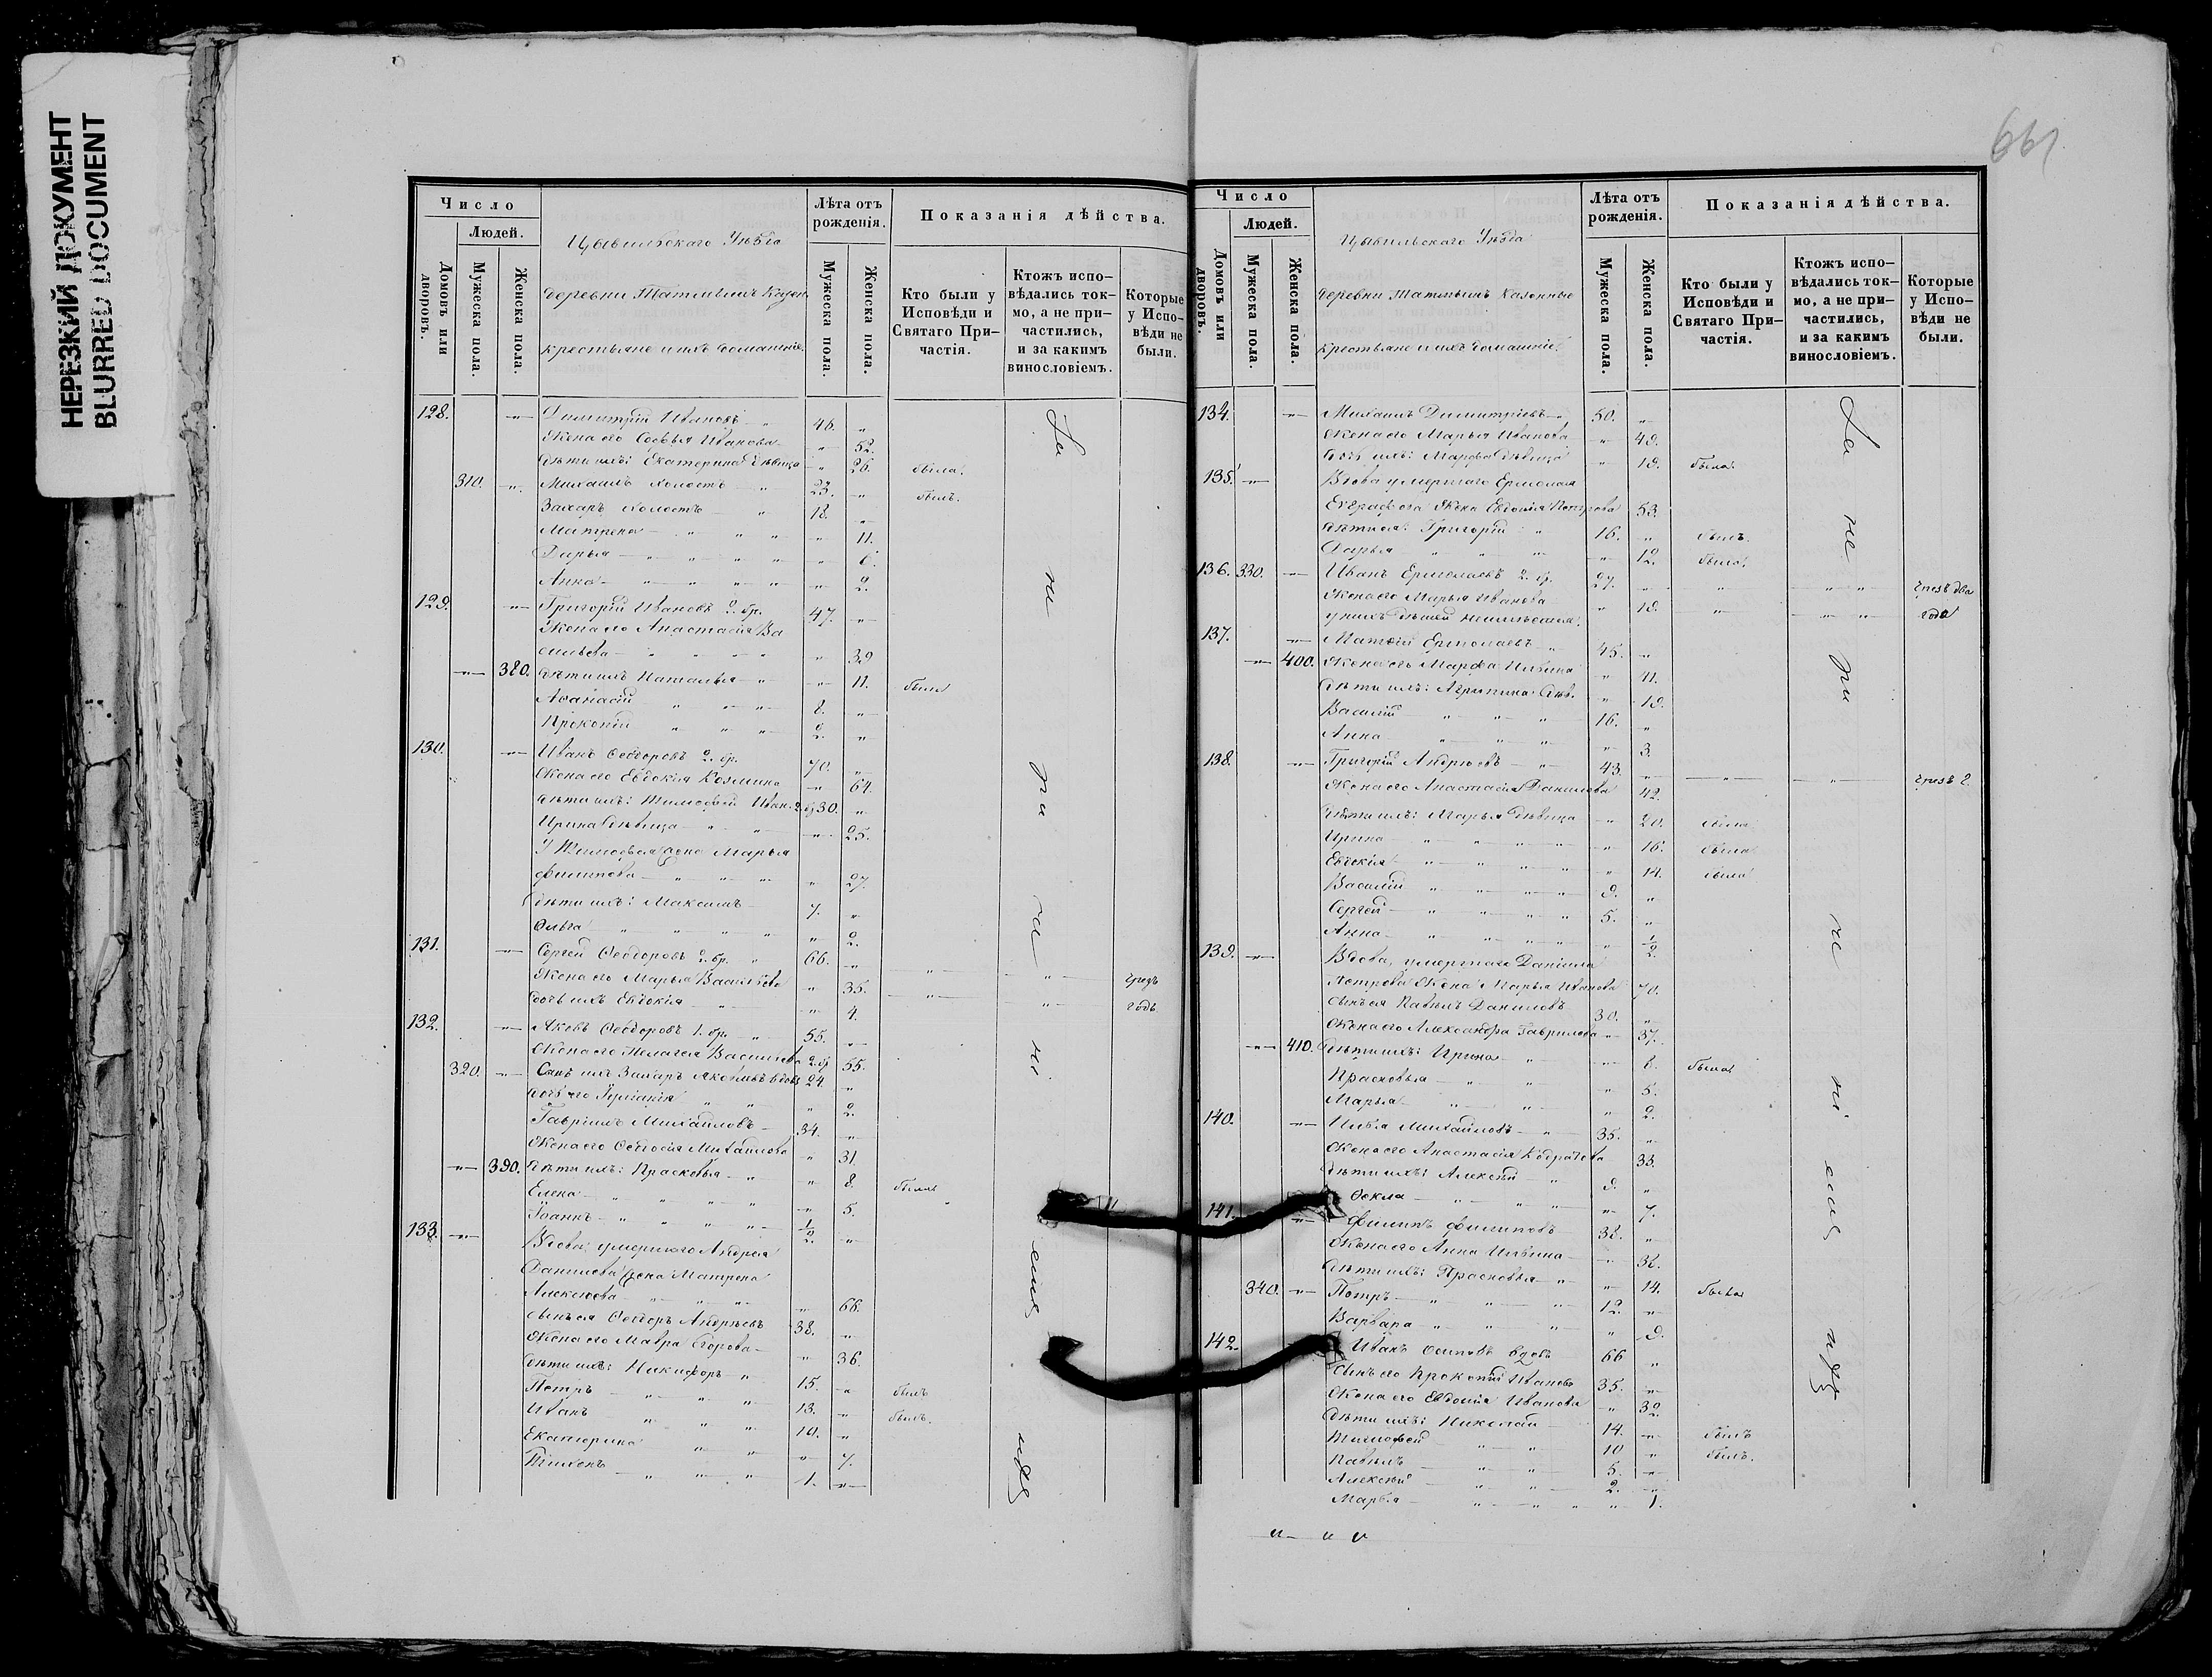 НЕРЕЗКИЙ ДОКУМЕНТ
BLURRED DOCUMENT
661
Число
Людей.
Домовъ или дворовъ.
Мужеска пола.
Женска пола.
Цывильскаго Уѣзда
деревни
крестьяне и ихъ домашніе.
Лѣта отъ рожденія.
Мужеска пола.
Женска пола.
Показанія дѣйства.
Кто были у Исповѣди и Святаго Причастія.
Ктожъ исповѣдались токмо, а не причастились, и за какимъ винословіемъ.
Которые у Исповѣди не были.
128. Димитрій Ивановъ 46.
Жена его Софья Иванова 52.
Дѣти ихъ: Екатерина дѣвица 26. была.
310. Михаилъ холостъ 23. былъ.
Захаръ холостъ 18.
Матрена 11.
Дарья 6.
Анна 2.
129. Григорій Ивановъ 2. бр. 47.
Жена его Анастасія Ва
сильева 39
380. Дѣти ихъ Наталья 11. была
Аѳанасій 8.
Прокопій 2.
130. Иванъ Ѳеодоровъ 2. бр. 70.
Жена его Евдокія Козмина 64.
Дѣти ихъ: Тимофей Иван. 2. бр. 30.
Ирина дѣвица 25.
У Тимофея жена Марья
Филипова 27.
Дѣти ихъ: Максимъ 7.
Ольга 2.
131. Сергей Ѳеодоровъ 2. бр. 66.
Жена его Марья Васильева 35. чрезъ
дочь ихъ Евдокія 4. годъ
132. Яковъ Ѳеодоровъ 1. бр. 55.
Жена его Пелагея Васильева 2. бр 55.
320. Сынъ ихъ Захаръ Яковлевъ вдовъ 24.
дочь его 2.
Гавріилъ Михайловъ 34.
Жена его Ѳедосія Михайлова 31.
390. Дѣти ихъ: Прасковья 8. была
Елена 5.
Іоаннъ 1/2
133. Вдова, умершаго Андрея
Данилова жена Матрена
Алексѣева 66.
сынъ ея Ѳедоръ Андреевъ 38.
Жена его Мавра Егорова 36.
Дѣти ихъ: Никифоръ 15. былъ
Петръ 13. былъ.
Иванъ 10.
Екатерина 7.
Тихонъ 1.
Число
Людей.
Домовъ или дворовъ.
Мужеска пола.
Женска пола.
Цывильскаго Уѣзда
деревни казенные
крестьяне и ихъ домашніе.
Лѣта отъ рожденія.
Мужеска пола.
Женска пола.
Показанія дѣйства.
Кто были у Исповѣди и Святаго Причастія.
Ктожъ исповѣдались токмо, а не причастились, и за какимъ винословіемъ.
Которые у Исповѣди не были.
134. Михаилъ Димитріевъ 50.
Жена его Марья Иванова 49.
дочь ихъ: Марфа дѣвица 19. была.
135. Вдова умершаго Ермолая
Евграфова жена Евдокія Петрова 53.
Дѣти ея: Григорій 16. былъ.
Дарья 12. была.
136. 330. Иванъ Ермолаевъ 2. бр. 27. чрезъ два
Жена его Марья Иванова 19. года
у нихъ дѣтей
137. Матвей Ермолаевъ 45.
400. Жена его Марфа Ильина 41.
Дѣти ихъ: Агрипина дѣв. 19.
Василій 16.
Анна 3.
138. Григорій Андреевъ 43. чрезъ 2
Жена его Анастасія Данилова 42.
Дѣти ихъ: Марья дѣвица 20. была
Ирина 16. была
Евдокія 14. была
Василій 9.
Сергей 5.
Анна 1/2
139. Вдова, умершаго Даніила
Петрова жена Марья Иванова 70.
сынъ ея Павелъ Даниловъ 30.
Жена его Александра Гаврилова 37.
410. Дѣти ихъ: Ирина 8. была
Прасковья 5.
Марья 2.
140. Илья Михайловъ 35.
Жена его Анастасія 33.
Дѣти ихъ: Алексѣй 9.
Ѳекла 7.
141. Филипъ Филиповъ 38.
Жена его Анна Ильина 38.
Дѣти ихъ: Прасковья 14. была
340. Петръ 12.
Варвара 9.
142. Иванъ Осиповъ вдовъ 66
Сынъ его Прокопій Ивановъ 35.
Жена его Евдокія Иванова 32.
Дѣти ихъ: Николай 14. былъ
Тимофей 10 былъ.
Павелъ 5.
Алексѣй 2.
Марья 1.